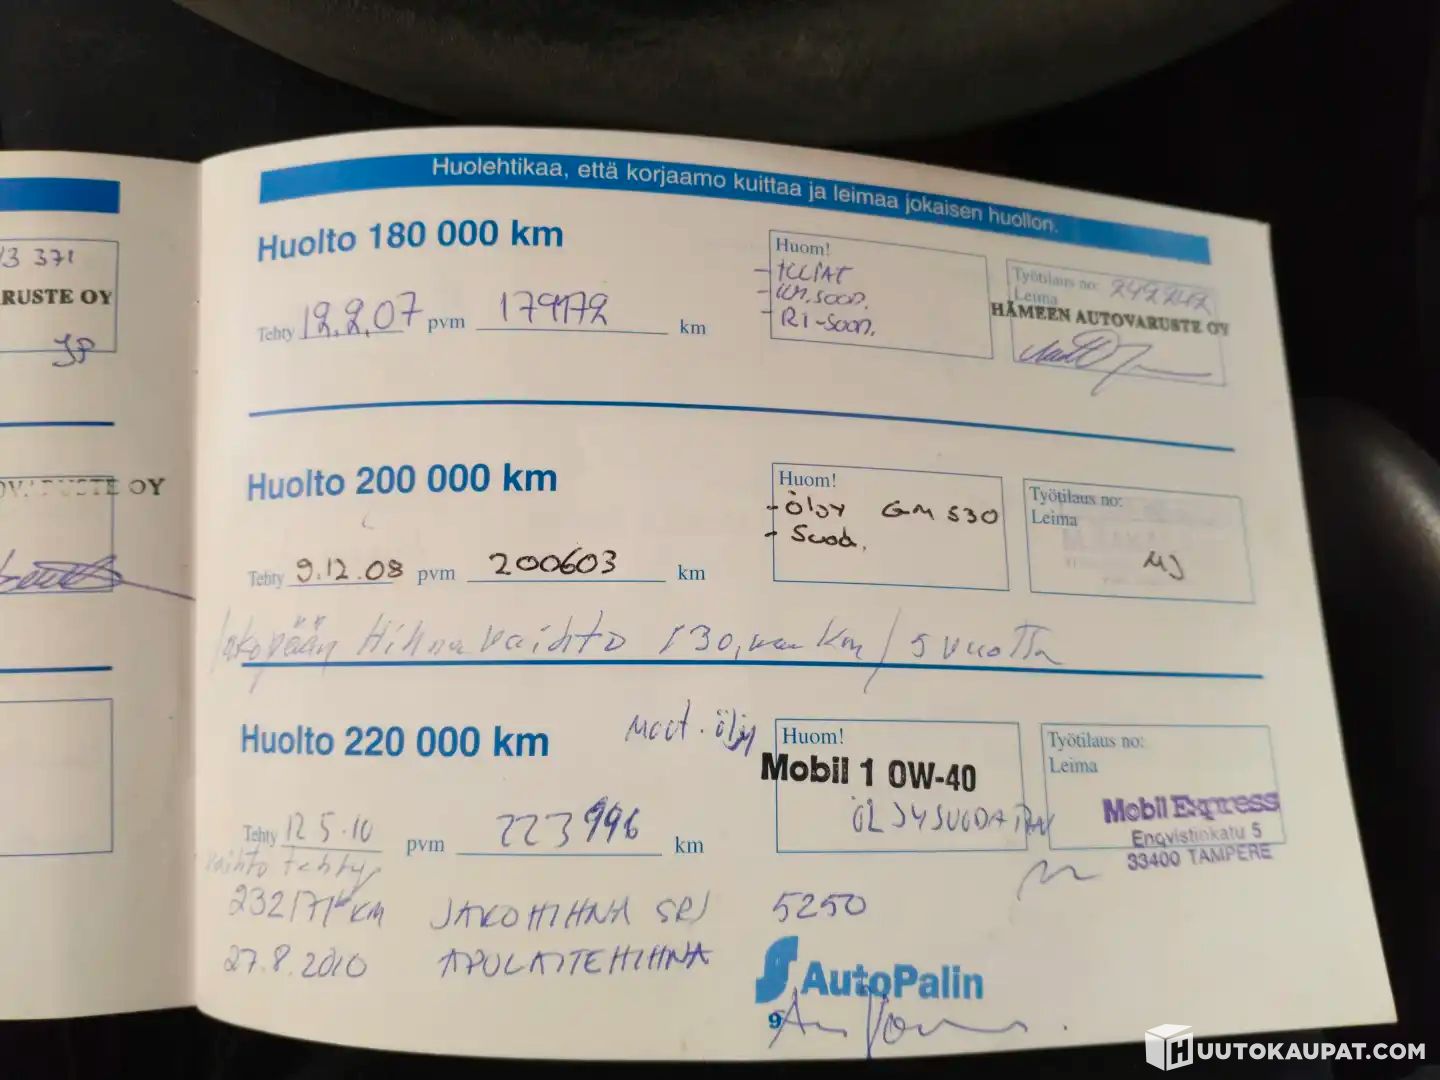 Huolehtikaa, että korjaamo kuittaa ja leimaa jokaisen huollon.
371
RUSTE OY
OY
Huolto 180 000 km
Tehty 12.2.07 pvm 179172 km
Huom!
- ILMAS.
- RI-SUOD.
Työtilaus no: 242242
Leima
HÄMEEN AUTOVARUSTE OY
Huolto 200 000 km
Tehty 9.12.08 pvm 200603 km
Huom!
- Öljy GM 530
- Suod.
Työtilaus no:
Leima
MJ
Jakopään Hihna vaihto 130, km / 5 vuotta
Huolto 220 000 km
Moot. öljy
Tehty 12 5.10 pvm 223996 km
Huom!
Mobil 1 0W-40
ÖLJYSUODATIN
Työtilaus no:
Leima
Mobil Express
Enqvistinkatu 5
33400 TAMPERE
vaihto tehty
232171 KM JAKOHIHNA SRJ 5250
27.8.2010 APULAITEHIHNA
AutoPalin
9
HUUTOKAUPAT.COM